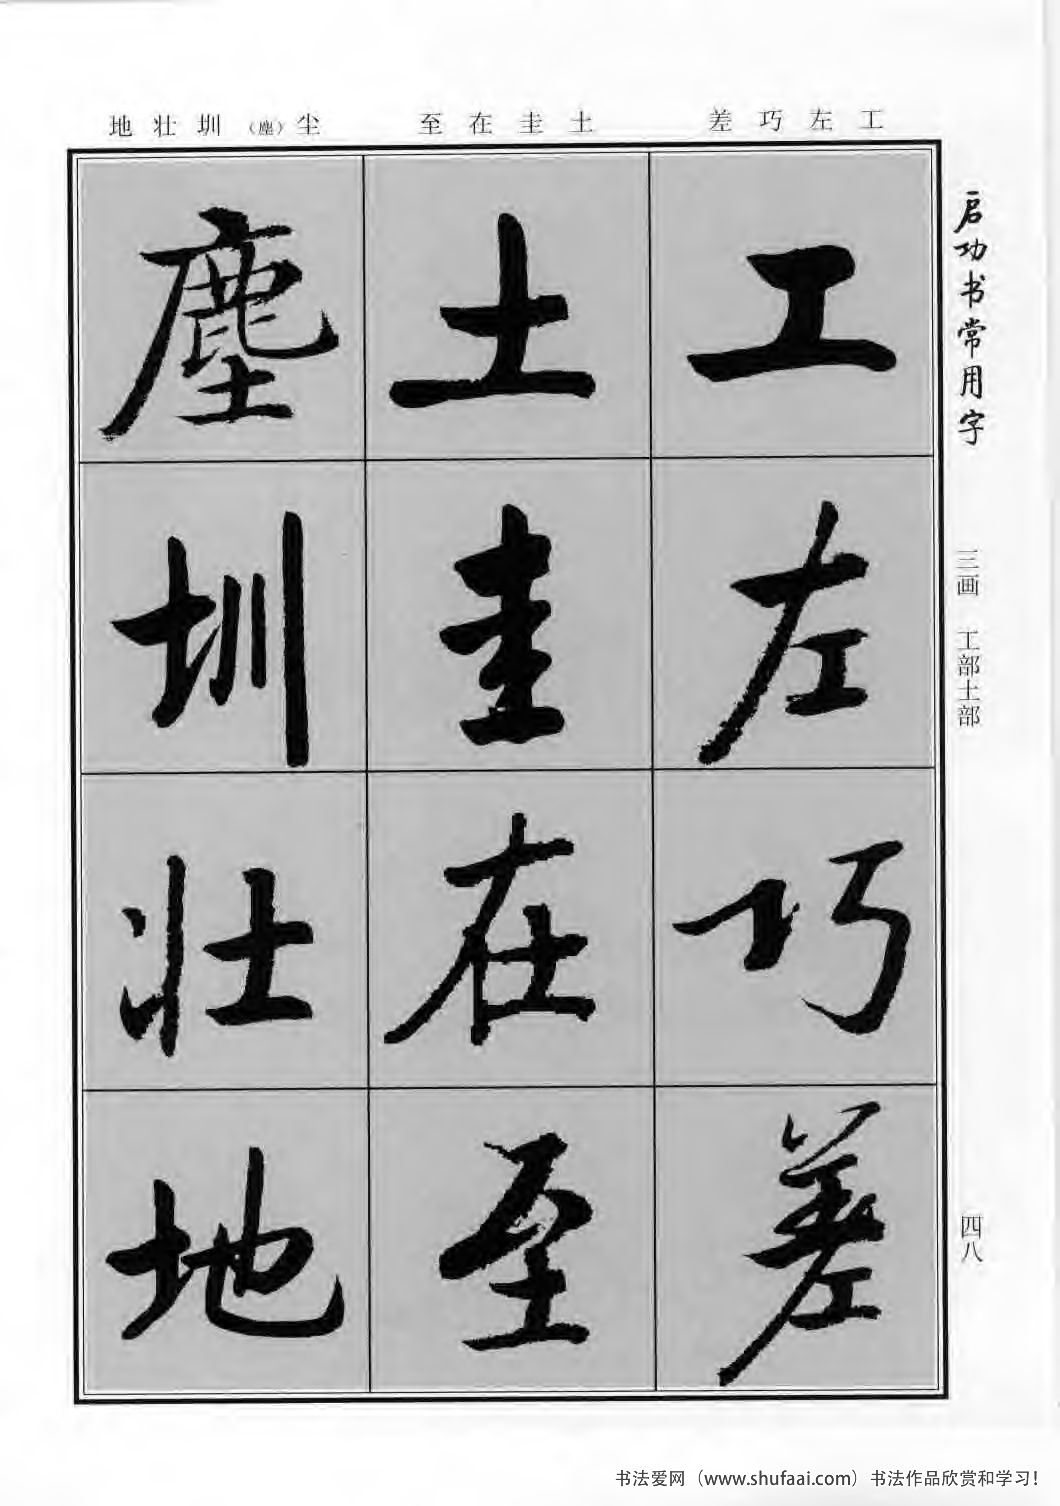 启功书常用字
三画 工部土部
四八
工左巧差
土圭在至
尘（塵）圳壮地
工
左
巧
差
土
圭
在
至
塵
圳
壮
地
书法爱网（www.shufaai.com）书法作品欣赏和学习！